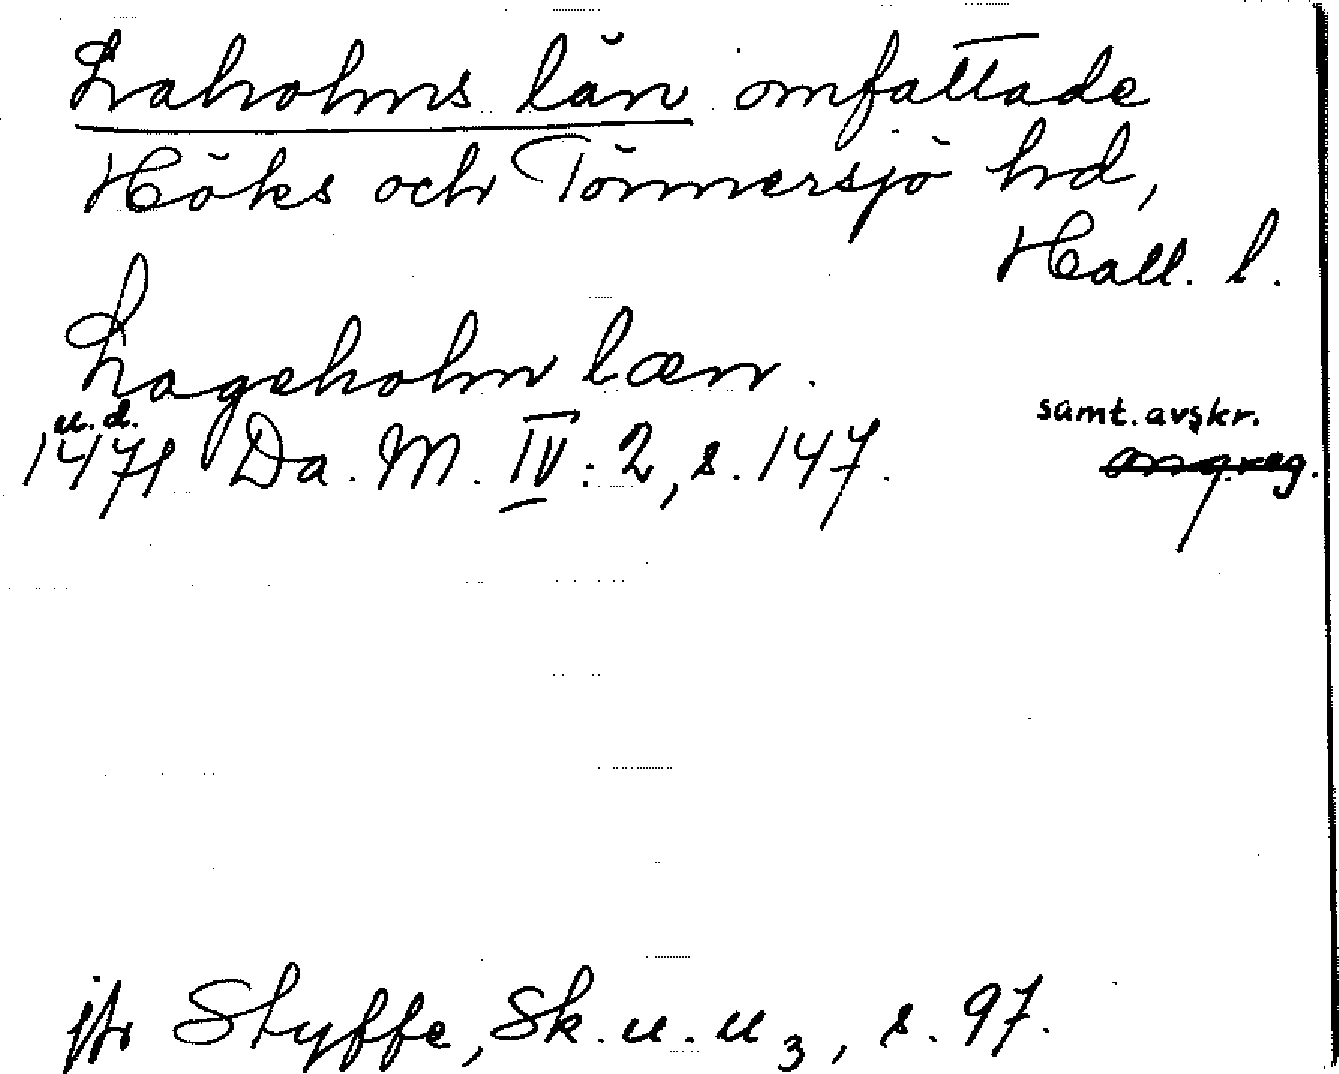 Laholms län omfattade
Höks och Tönnersjö hd,
Hall. l.
Lageholm læn.
u. d.
1471 Da. M. IV: 2, s. 147.
samt. avskr.
jfr Styffe, Sk. u. u3, s. 97.